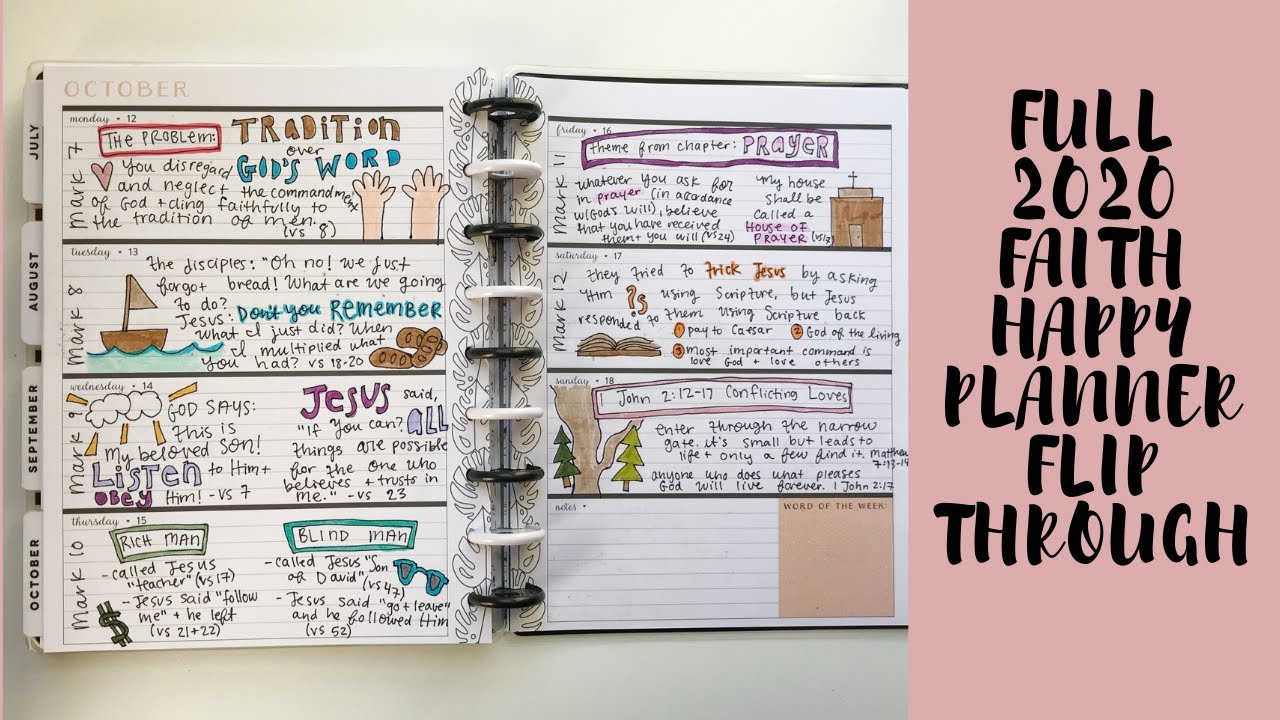 OCTOBER
JULY
AUGUST
SEPTEMBER
OCTOBER
monday • 12
Mark 7
THE PROBLEM:
TRADITION
over
GOD'S WORD
You disregard
and neglect the commandment
of God + cling faithfully to
the tradition of men.
(vs 8)
tuesday • 13
Mark 8
the disciples: "Oh no! we just
forgot bread! What are we going
to do?
Jesus: Don't you REMEMBER
what I just did? When
I multiplied what
you had? vs 18-20
wednesday • 14
Mark 9
GOD SAYS:
This is
My beloved Son!
LISTEN to Him +
OBEY Him! - vs 7
JESUS said,
"If you can? ALL
things are possible
for the one who
believes + trusts in
me." - vs 23
thursday • 15
Mark 10
RICH MAN
- called Jesus
"teacher" (vs 17)
- Jesus said "follow
me" + he left
(vs 21+22)
$
BLIND MAN
- called Jesus "Son
of David" (vs 47)
- Jesus said "go + leave"
and he followed Him
(vs 52)
friday • 16
Mark 11
theme from chapter: PRAYER
whatever you ask for
in prayer (in acordance
w/God's will), believe
that you have received
them + you will (vs 24)
My house
shall be
called a
HOUSE OF
PRAYER (vs 17)
saturday • 17
Mark 12
they tried to trick Jesus by asking
Him ?s using Scripture, but Jesus
responded to them using Scripture back
① pay to Caesar ② God of the living
③ most important command is
love God + love others
sunday • 18
1 John 2:12-17 Conflicting Loves
enter through the narrow
gate. it's small but leads to
life + only a few find it. Matthew
7:13-14
anyone who does what pleases
God will live forever. 1 John 2:17
notes •
WORD OF THE WEEK:
FULL
2020
FAITH
HAPPY
PLANNER
FLIP
THROUGH